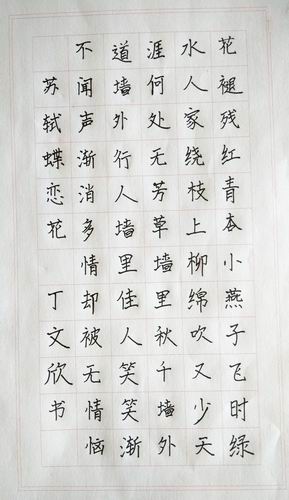 花褪残红青杏小燕子飞时绿
水人家绕枝上柳绵吹又少天
涯何处无芳草墙里秋千墙外
道墙外行人墙里佳人笑笑渐
不闻声渐消多情却被无情恼
苏轼蝶恋花 丁文欣书